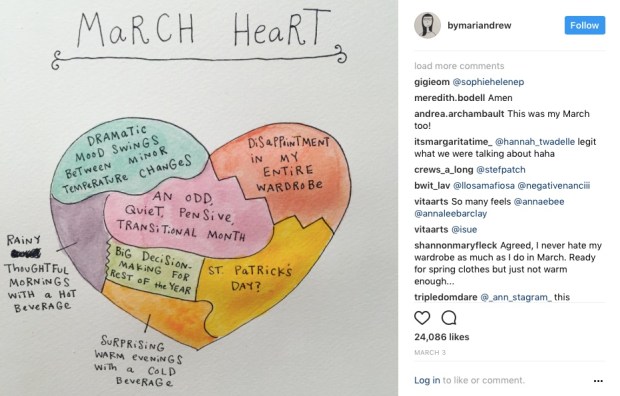 MaRCH HeaRT
DRaMaTiC
MOOD SWiNGS
BeTWeeN MiNOR
TeMPeRaTURe CHaNGeS
DiSaPPOiNTMENT
iN MY
ENTiRE
WaRDROBe
AN ODD,
QUieT, PeNSiVe,
TRaNSiTiONaL MONTH
RaiNY
THOUGHTFUL
MORNiNGS
WiTH a HOT
BeVeRaGe
BiG DeCiSiON-
MaKiNG FOR
ReST OF THe YeaR
ST. PaTRiCK'S
DaY?
SURPRiSiNG
WaRM eVeNiNGS
WiTH a COLD
BeVeRaGe
bymariandrew
Follow
load more comments
gigieom @sophiehelenep
meredith.bodell Amen
andrea.archambault This was my March
too!
itsmargaritatime_ @hannah_twadelle legit
what we were talking about haha
crews_a_long @stefpatch
bwit_lav @llosamafiosa @negativenanciii
vitaarts So many feels @annaebee
@annaleebarclay
vitaarts @isue
shannonmaryfleck Agreed, I never hate my
wardrobe as much as I do in March. Ready
for spring clothes but just not warm
enough...
tripledomdare @_ann_stagram_ this
24,086 likes
MARCH 3
Log in to like or comment.